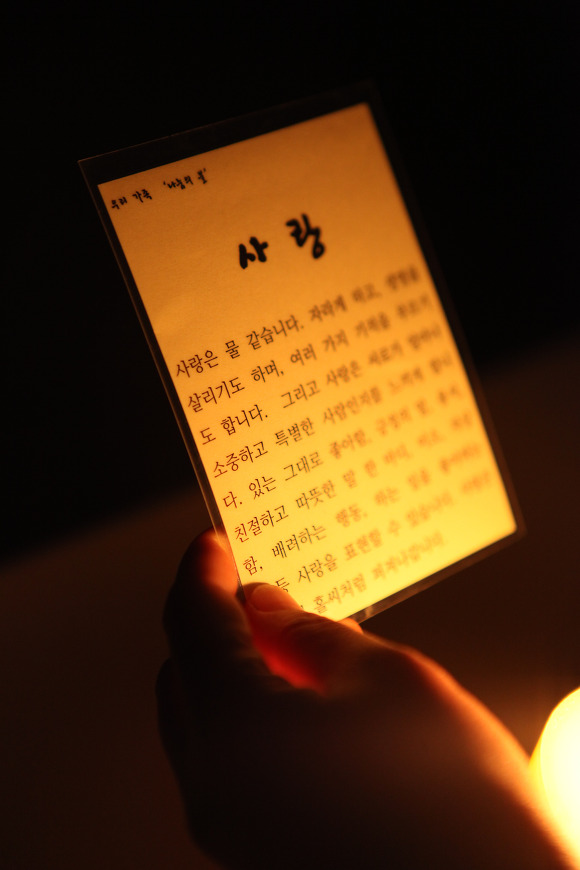 우리 가족 '나눔의 꽃'
사랑
사랑은 물 같습니다. 자라게 하고, 생명을
살리기도 하며, 여러 가지 기적을 부르기
도 합니다. 그리고 사랑은 서로가 얼마나
소중하고 특별한 사람인지를 느끼게 합니
다. 있는 그대로 좋아함, 긍정의 말, 용서,
친절하고 따뜻한 말 한 마디, 미소, 다정
함, 배려하는 행동, 하는 일을 좋아하는
등 사랑을 표현할 수 있습니다. 사랑은
홀씨처럼 퍼져나갑니다.